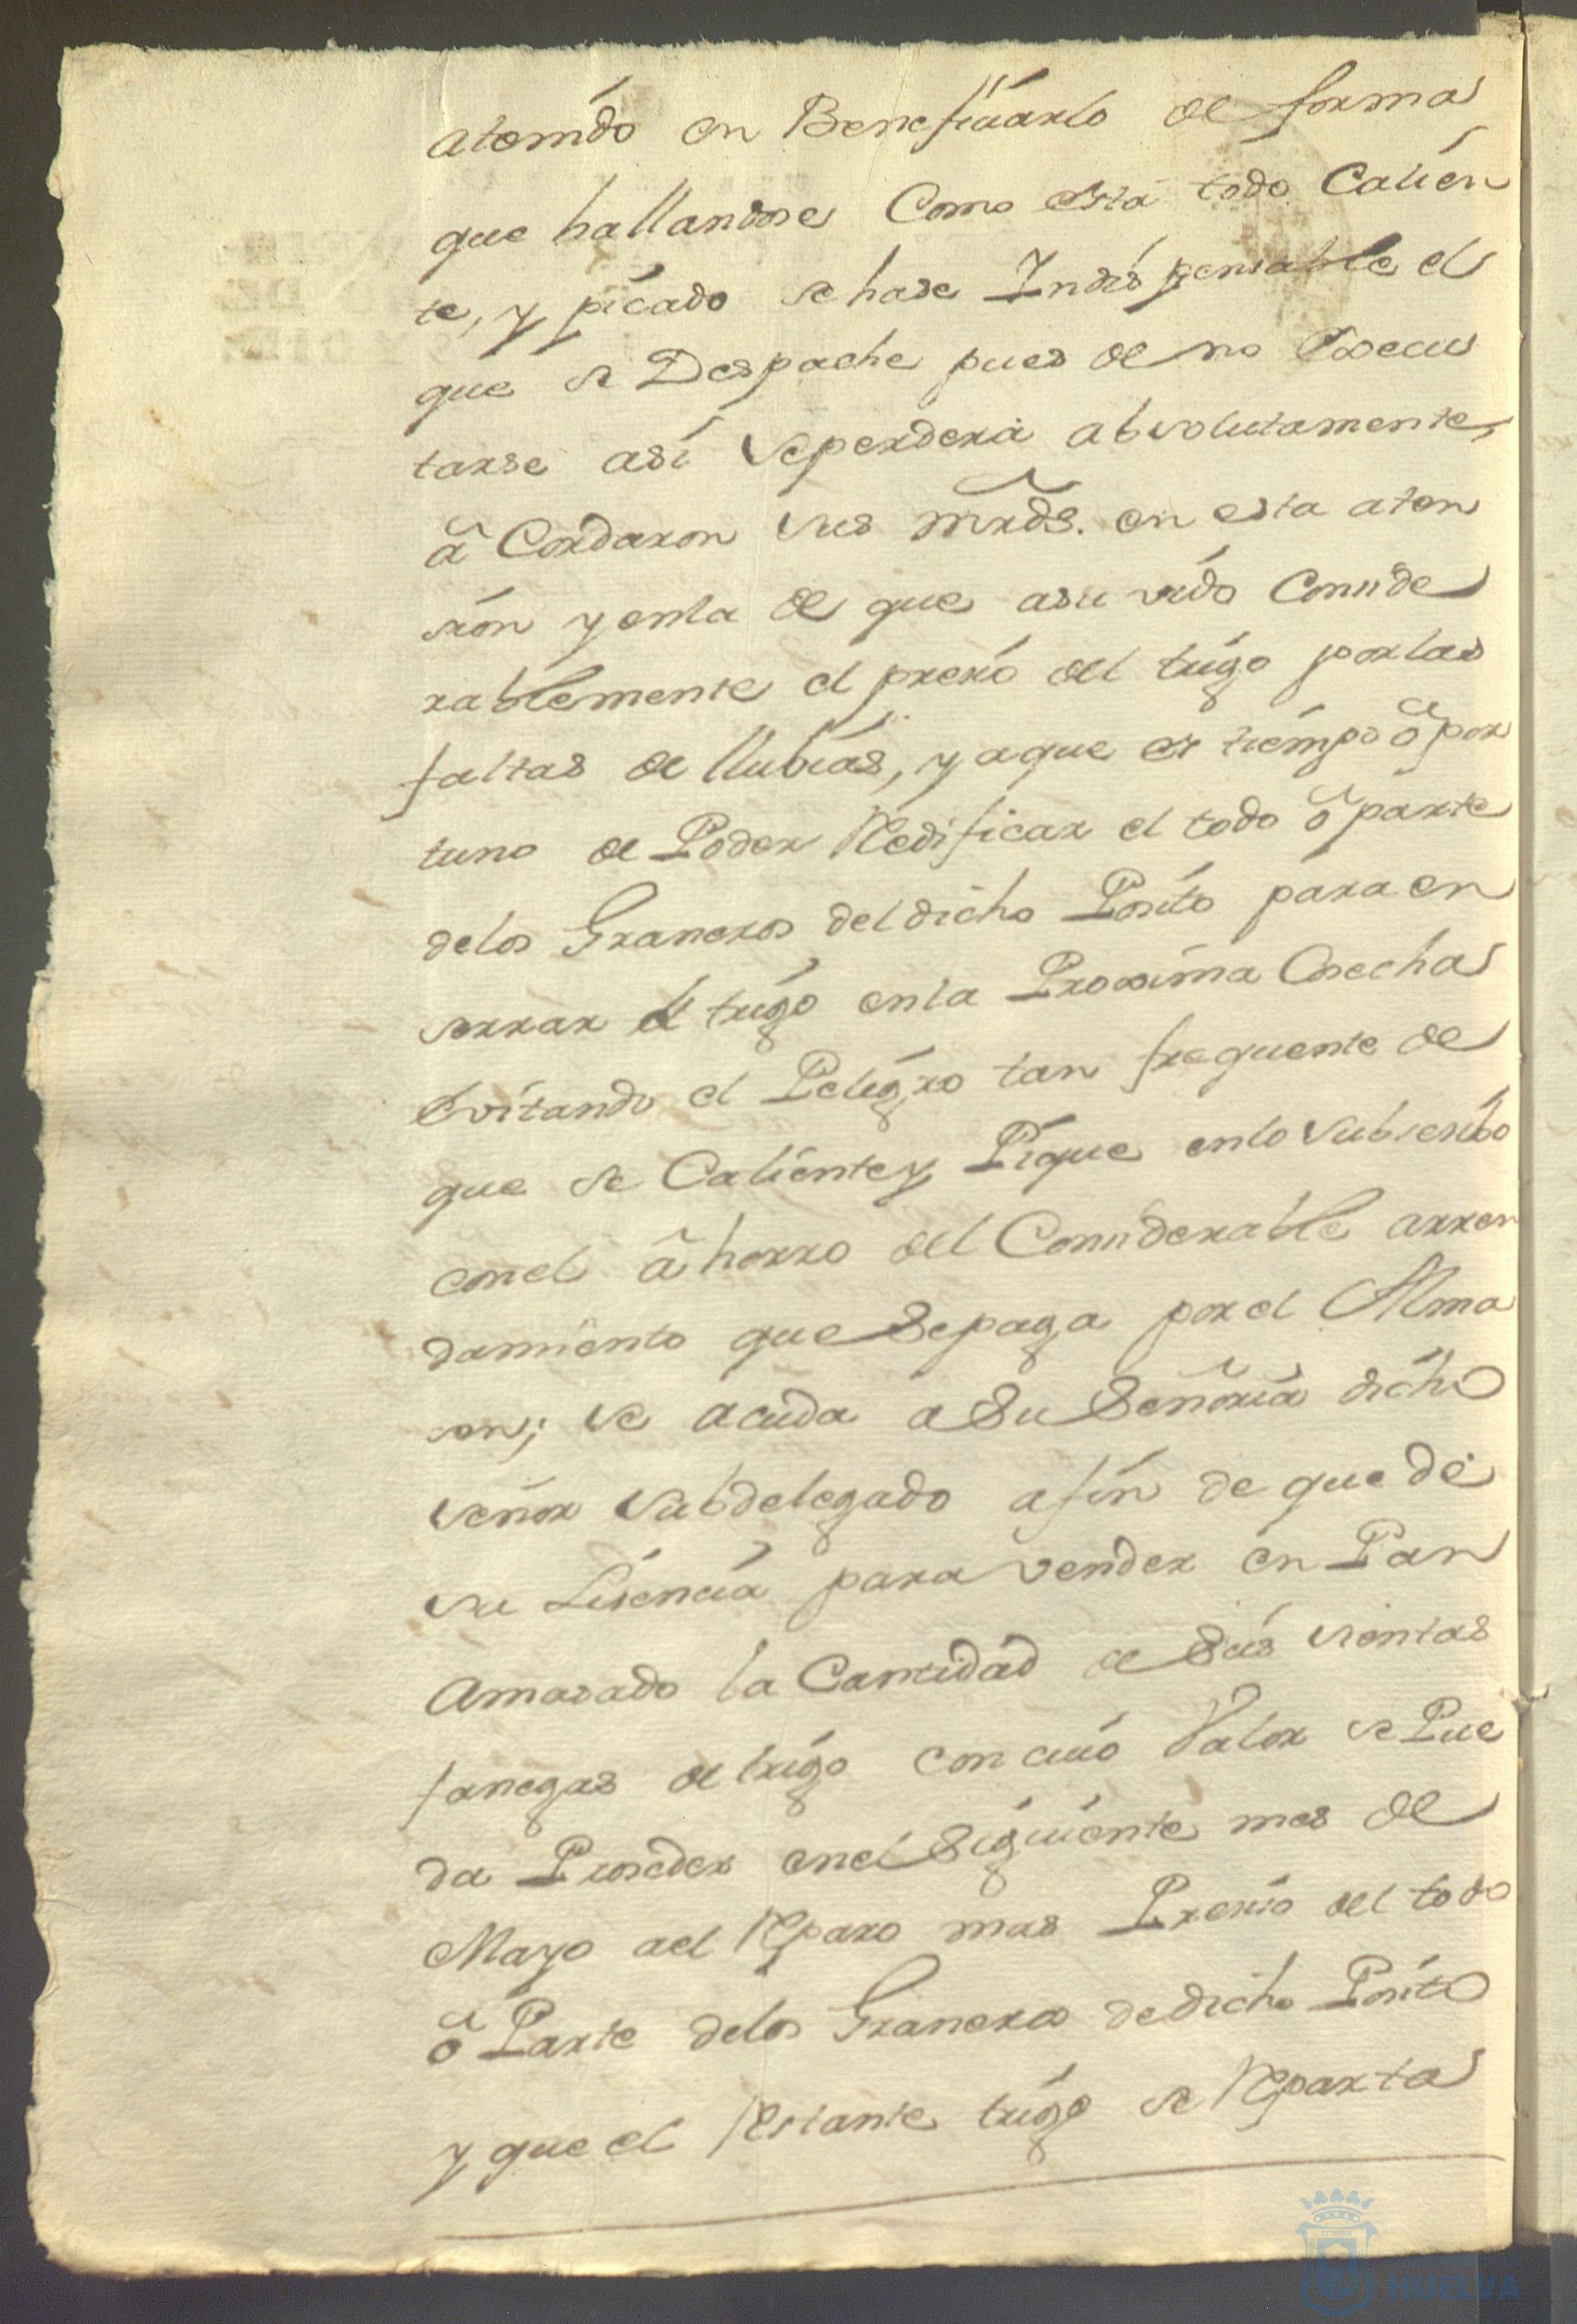 atenido en Beneficiarlo de forma
que hallandose Como está todo Calien
te, y picado se hase Indispensable el
que se Despache pues de no Execu
tarse así se perdera absolutamente,
â Cordaron sus mrds. en esta aten
sion y enla de que a subido Conside
rablemente el presio del trigo por las
faltas de llubias, y a que es tiempo ôpor
tuno de Poder Redificar el todo ô parte
delos Graneros del dicho Posito para en
serrar el trigo en la Proxima Cosecha
Evitando el Peligro tan frequente de
que se Caliente y Pique en lo Subsesibo
con el âhorro del Considerable arren
damiento que Se paga por el Alma
sen; se acuda a Su Señoria dicho
señor Subdelegado a fin de que dé
su Lisencia para vender en Pan
Amasado la Cantidad de Seis sientas
fanegas de trigo con cuio Valor se Pue
da Proseder en el Siguiente mes de
Mayo ael Reparo mas Presiso del todo
ô Parte delos Graneros de dicho Posito
y que el Restante trigo se Reparta
HUELVA